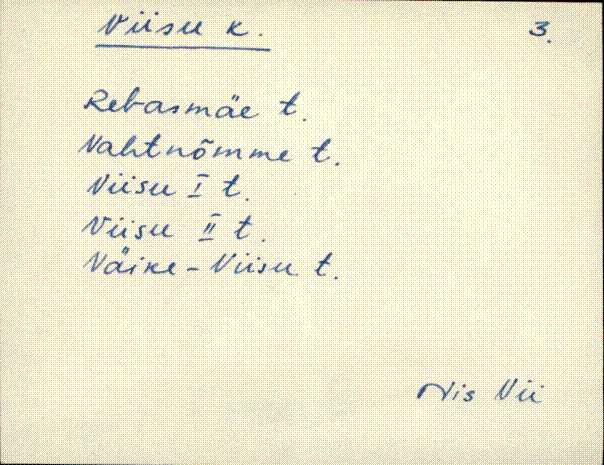 Viisu k.
3.
Rebasmäe t.
Vahtnõmme t.
Viisu I t.
Viisu II t.
Väike-Viisu t.
Vis Vii